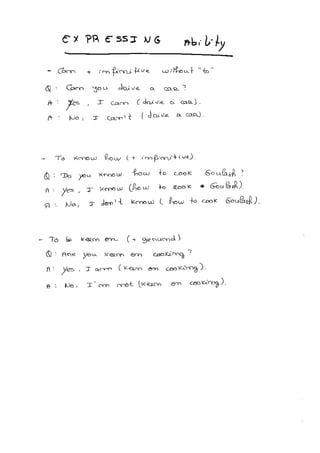 EXPRESSING Ability
- Can + infinitive without "to"
Q: Can you drive a car?
A: Yes, I can (drive a car).
A: No, I can't (drive a car).
- To know how (+ infinitive)
Q: Do you know how to cook Goulash?
A: Yes, I know (how to cook Goulash).
A: No, I don't know (how to cook Goulash).
- To be keen on (+ gerund)
Q: Are you keen on cooking?
A: Yes, I am (keen on cooking).
A: No, I'm not (keen on cooking).